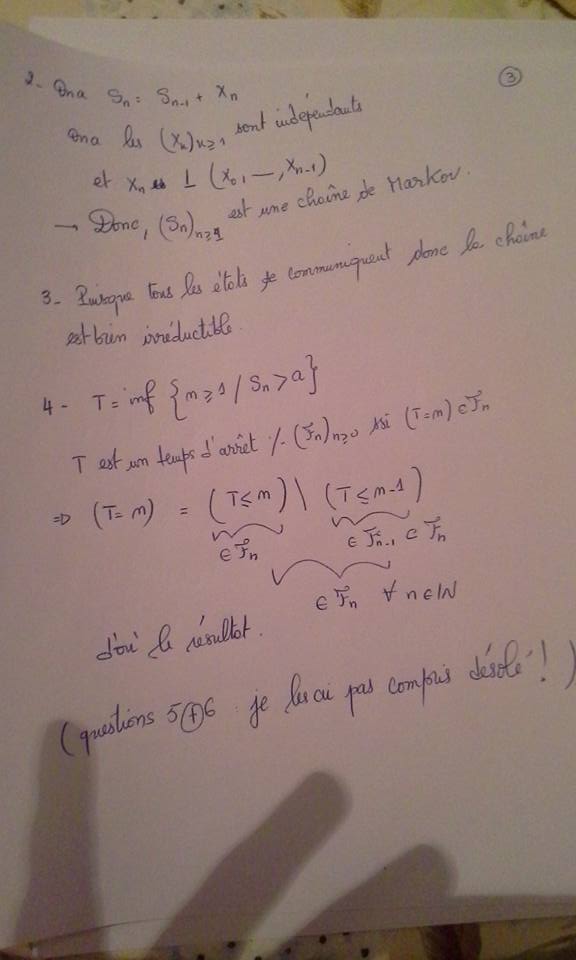 ③
2- On a Sn = Sn-1 + Xn
On a les (Xn)n≥1 sont indépendants
et Xn ⊥ (X0, —, Xn-1)
→ Donc, (Sn)n≥1 est une chaîne de Markov.
3- Puisque tous les états communiquent donc la chaîne
est bien irréductible.
4- T = inf { n ≥ 1 / Sn > a }
T est un temps d'arrêt %. (Fn)n≥0 ssi (T=n) ∈ Fn
⇒ (T=n) = (T≤n) \ (T≤n-1)
∈ Fn ∈ Fn-1 ⊂ Fn
∈ Fn ∀ n ∈ IN
d'où le résultat.
(questions 5⊕6 : je les ai pas compris désolé !)